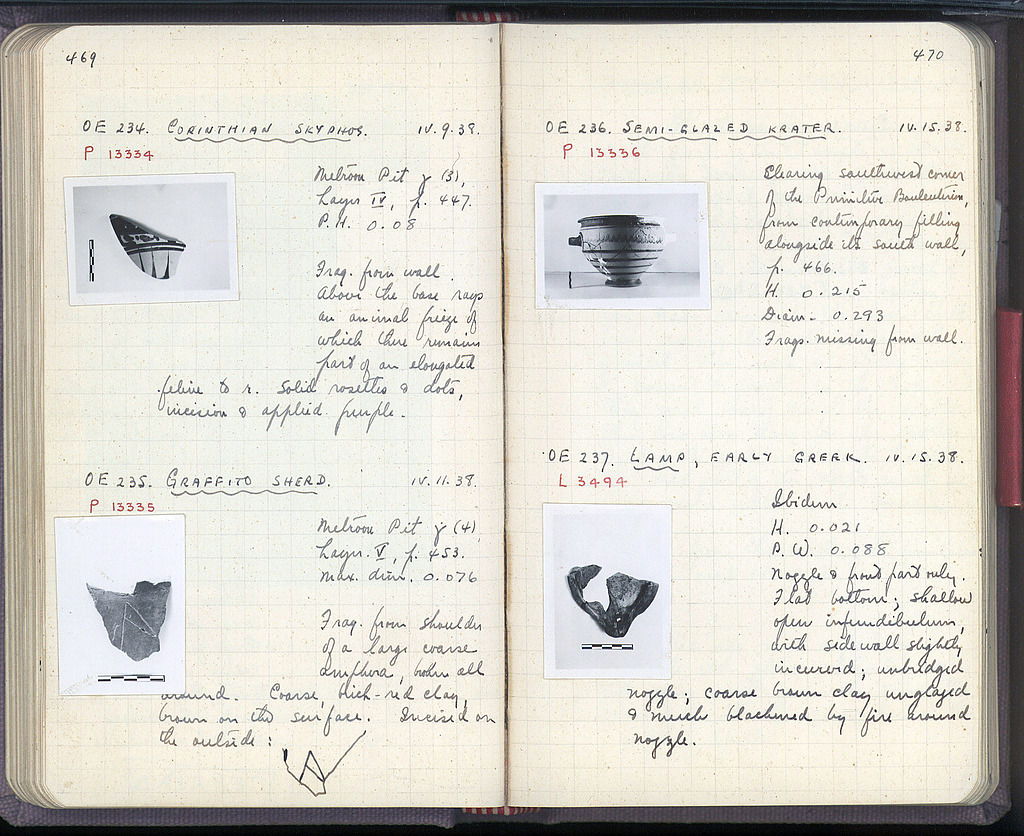 469
OE 234. CORINTHIAN SKYPHOS. IV.9.38.
P 13334
Metroon Pit γ (3),
Layer IV, p. 447.
P.H. 0.08
Frag. from wall.
Above the base rays
an animal frieze of
which there remains
part of an elongated
feline to r. Solid rosettes & dots,
incision & applied purple.
OE 235. GRAFFITO SHERD. IV.11.38
P 13335
Metroon Pit γ (4)
Layer V, p. 453.
Max. dim. 0.076
Frag. from shoulder
of a large coarse
amphora, broken all
around. Coarse, brick-red clay,
brown on the surface. Incised on
the outside:
470
OE 236. SEMI-GLAZED KRATER. IV.15.38.
P 13336
Clearing southwest corner
of the Primitive Bouleuterion,
from contemporary filling
alongside its south wall,
p. 466.
H. 0.215
Diam. 0.293
Frags. missing from wall.
OE 237. LAMP, EARLY GREEK. IV.15.38.
L 3494
Ibidem
H. 0.021
P.W. 0.088
Nozzle & front part only.
Flat bottom; shallow
open infundibulum,
with side wall slightly
incurved; unbridged
nozzle; coarse brown clay unglazed
& much blackened by fire around
nozzle.